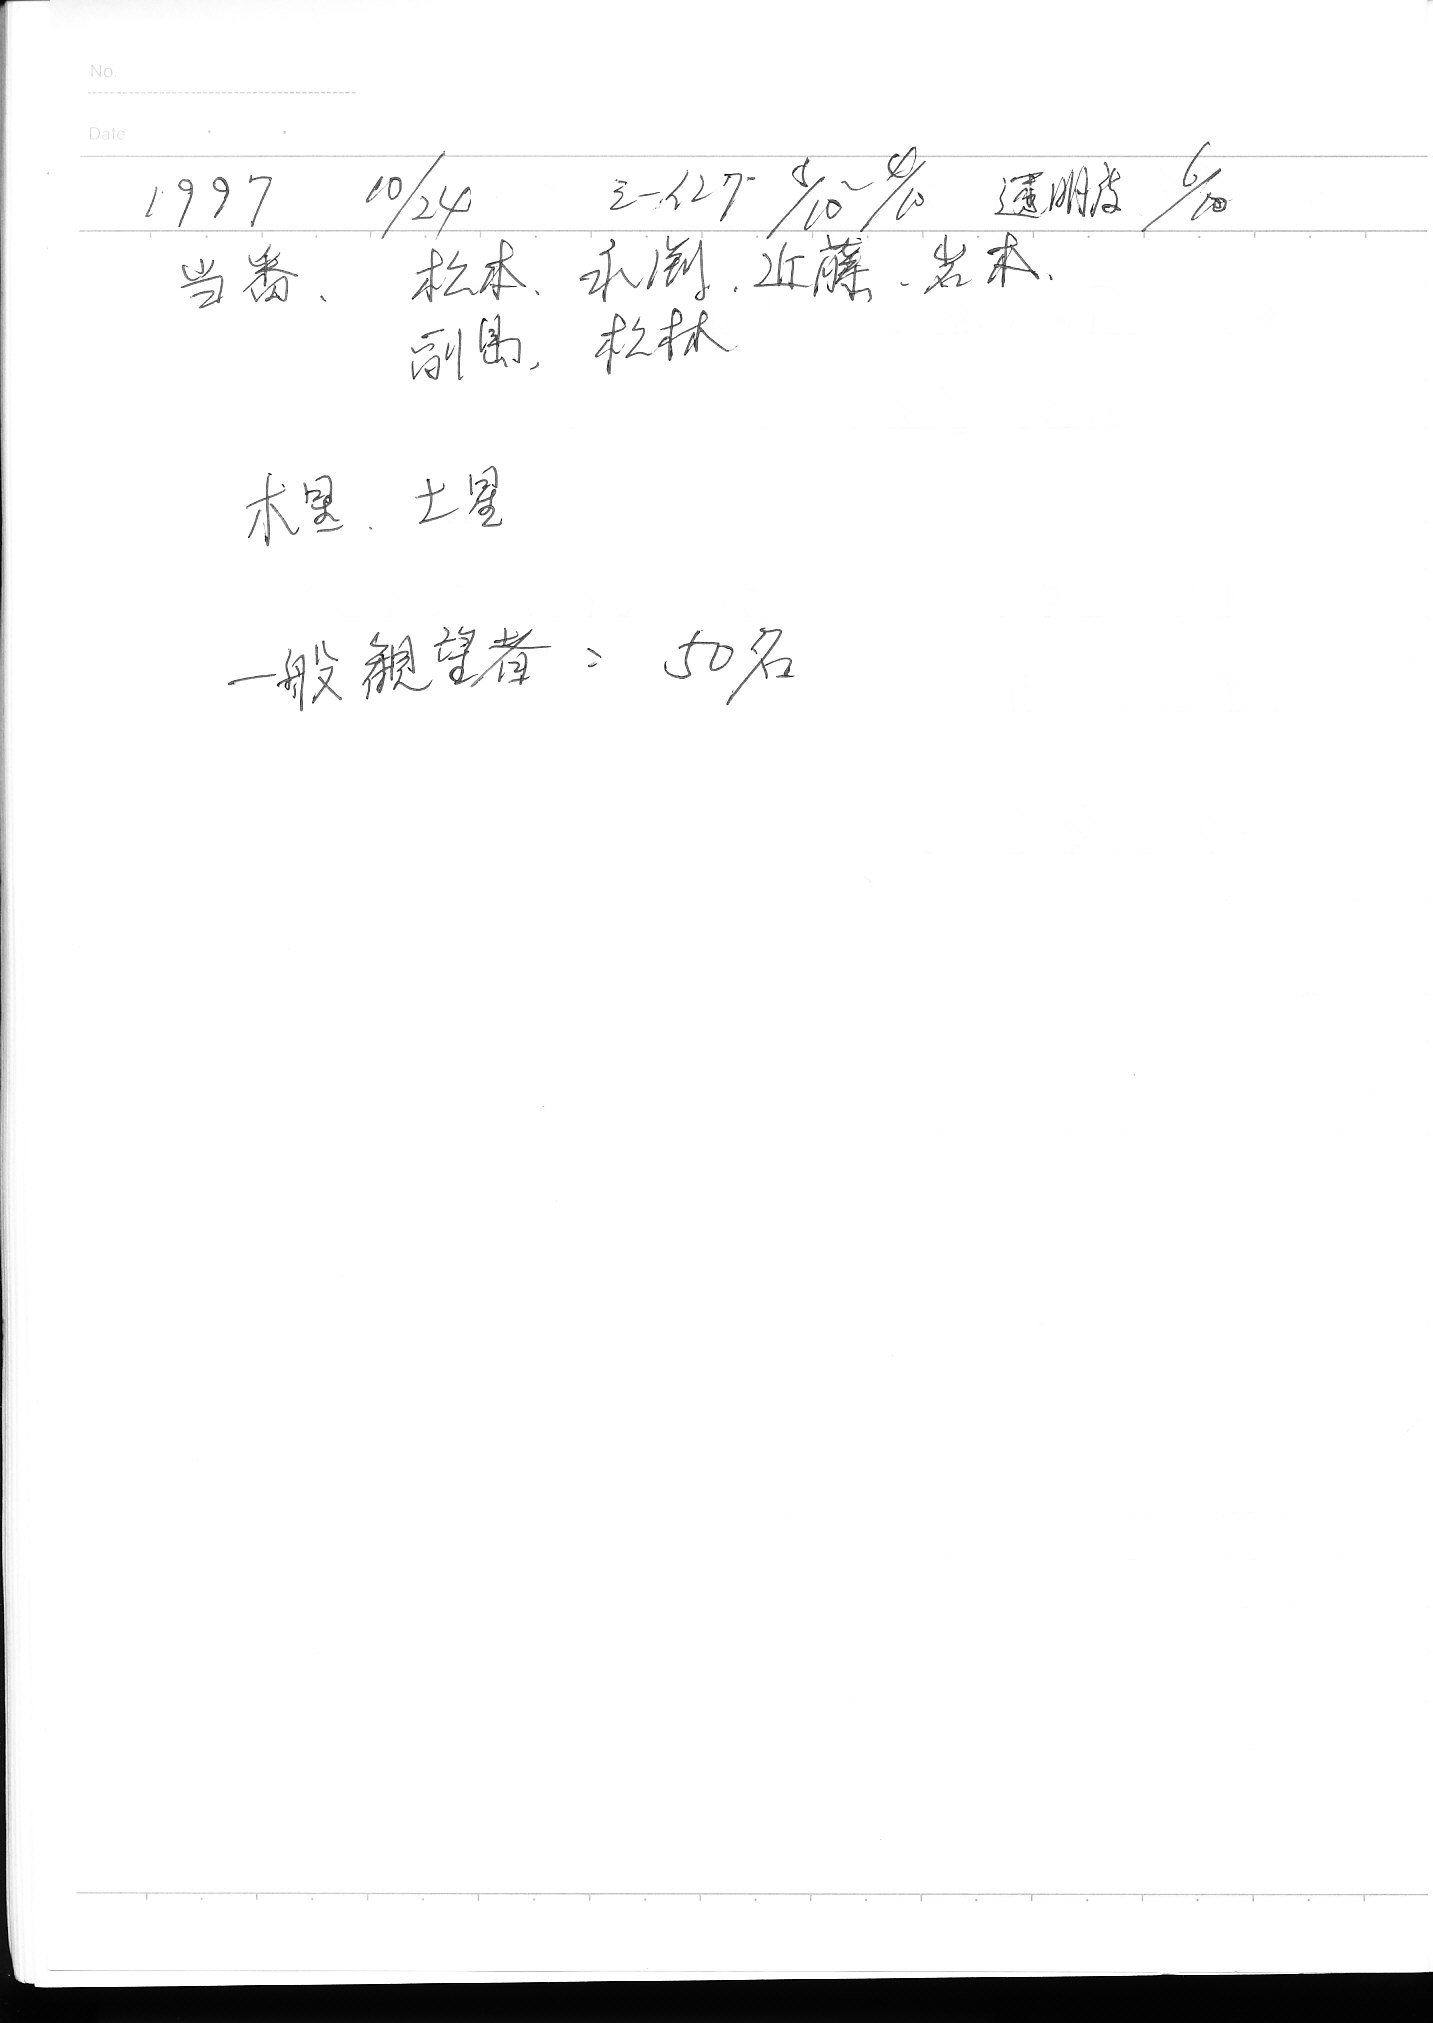 No.
Date
1997 10/24 シーイング 5/10～4/10 透明度 6/10
当番、 松本、永渕、近藤、岩本、
副島、松林
木星、土星
一般観望者：50名